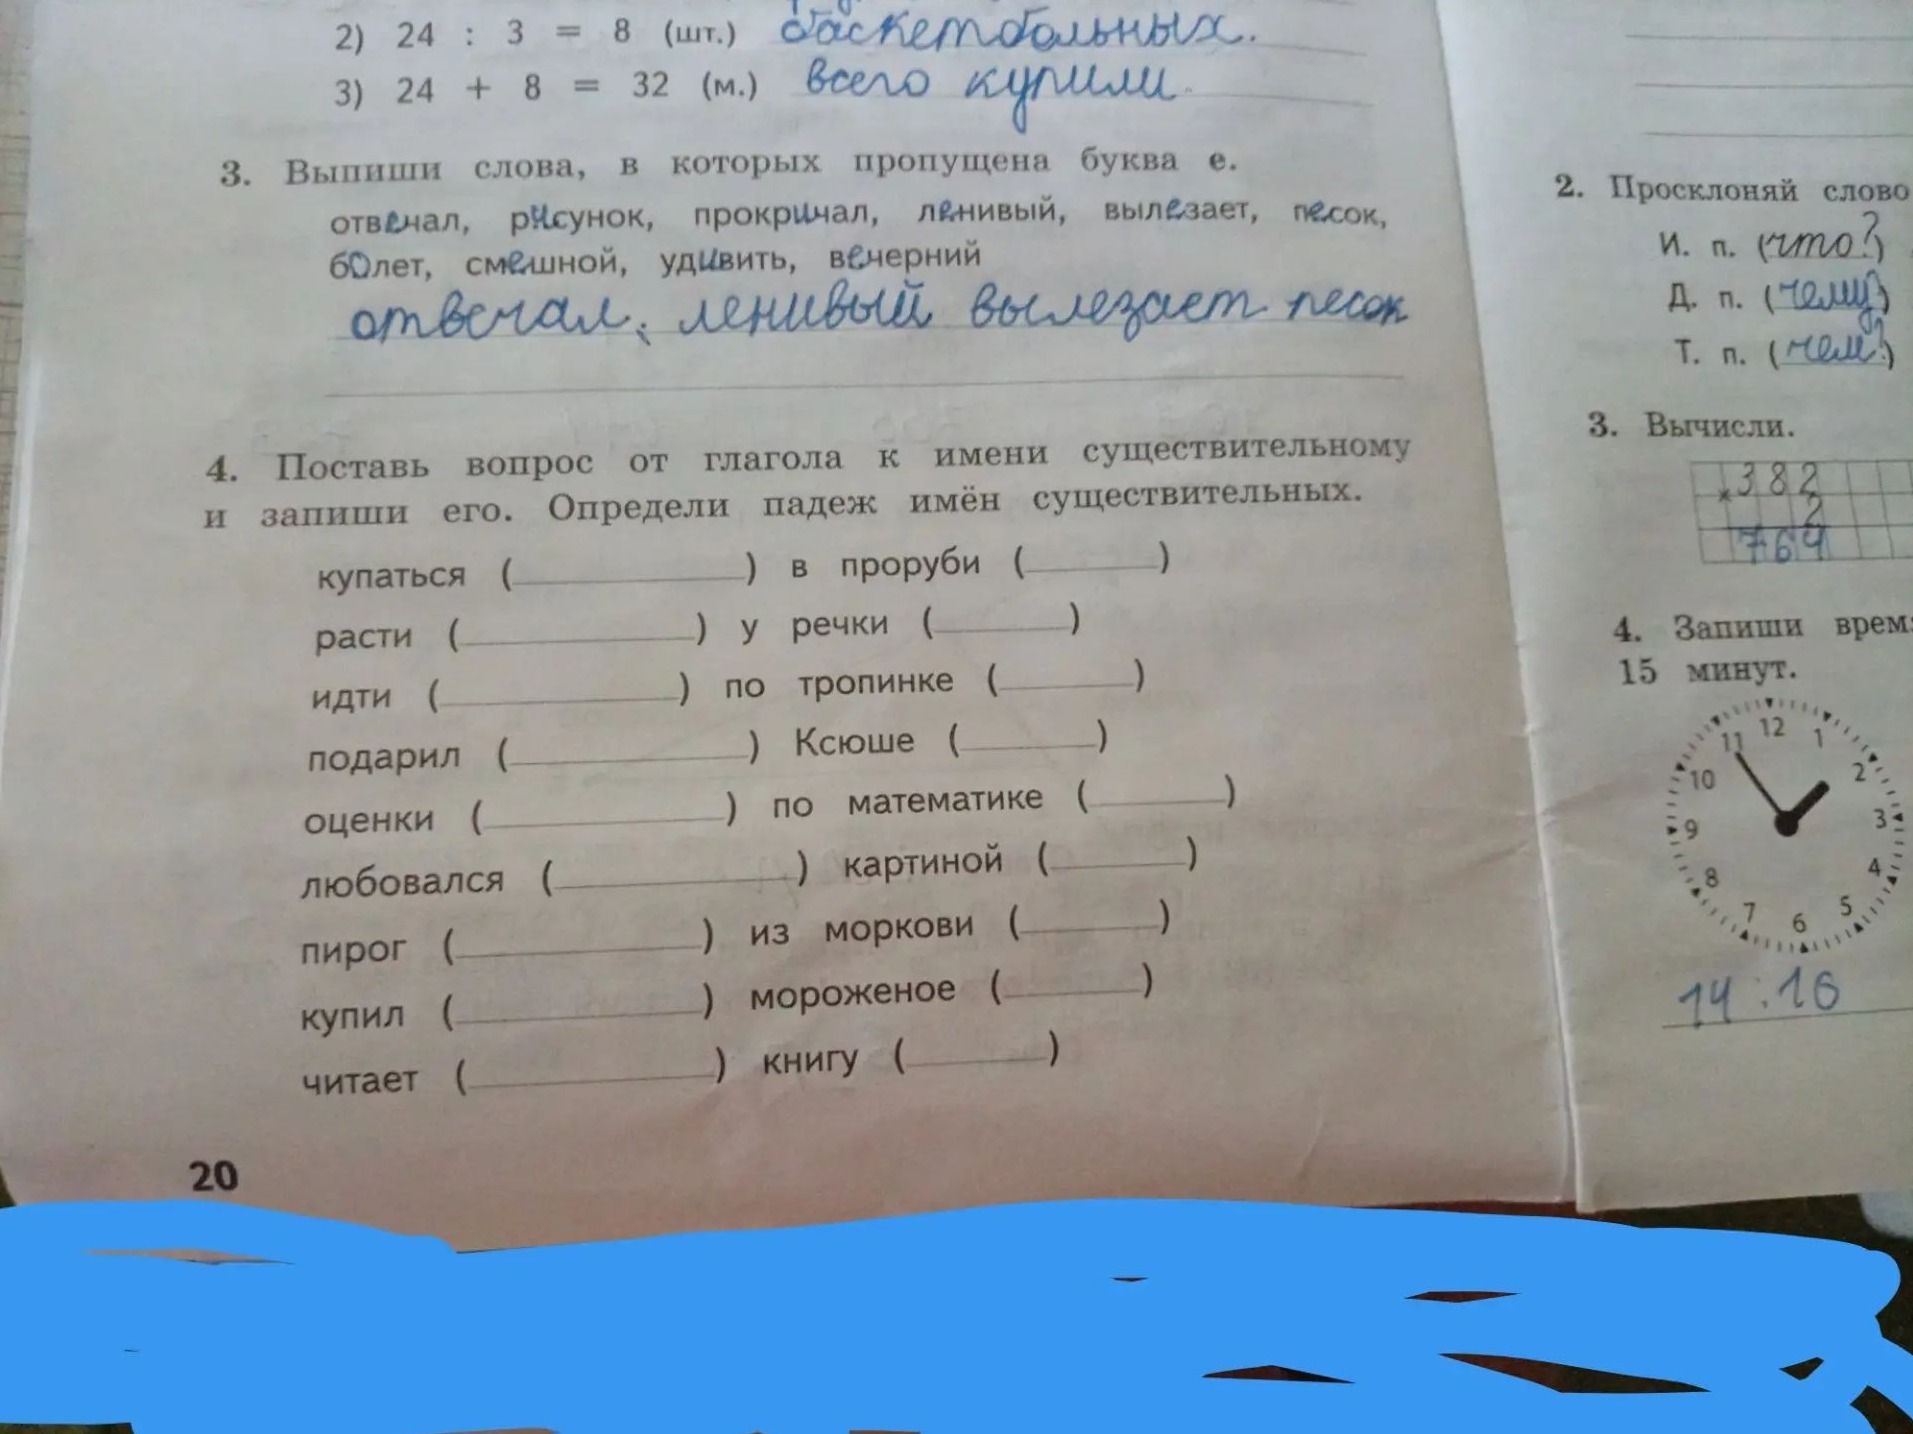 2) 24 : 3 = 8 (шт.) баскетбольных.
3) 24 + 8 = 32 (м.) всего купили.
3. Выпиши слова, в которых пропущена буква е.
отвечал, рисунок, прокричал, ленивый, вылезает, песок,
болет, смешной, удивить, вечерний
отвечал, ленивый вылезает песок
4. Поставь вопрос от глагола к имени существительному
и запиши его. Определи падеж имён существительных.
купаться (____) в проруби (____)
расти (____) у речки (____)
идти (____) по тропинке (____)
подарил (____) Ксюше (____)
оценки (____) по математике (____)
любовался (____) картиной (____)
пирог (____) из моркови (____)
купил (____) мороженое (____)
читает (____) книгу (____)
20
2. Просклоняй слово
И. п. (что?)
Д. п. (чему?)
Т. п. (чем?)
3. Вычисли.
× 382
2
764
4. Запиши врем
15 минут.
12
11 1
10 2
9 3
8 4
7 5
6
14:16